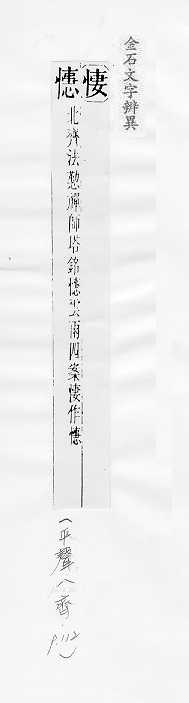 金石文字辨異
〔悽〕
憓
北齊法懃禪師塔銘憓雲雨四案悽作憓
(平聲八齊.p.112)